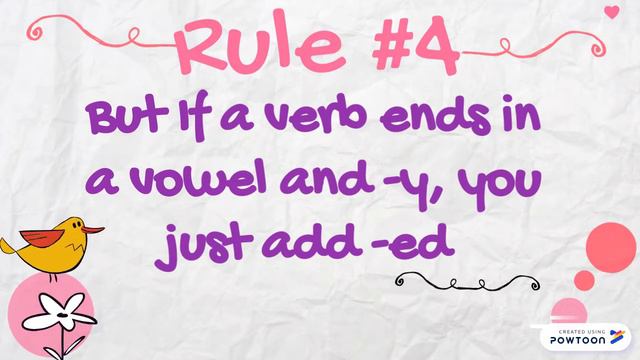 Rule #4
But If a verb ends in
a vowel and -y, you
just add -ed
CREATED USING
POWTOON